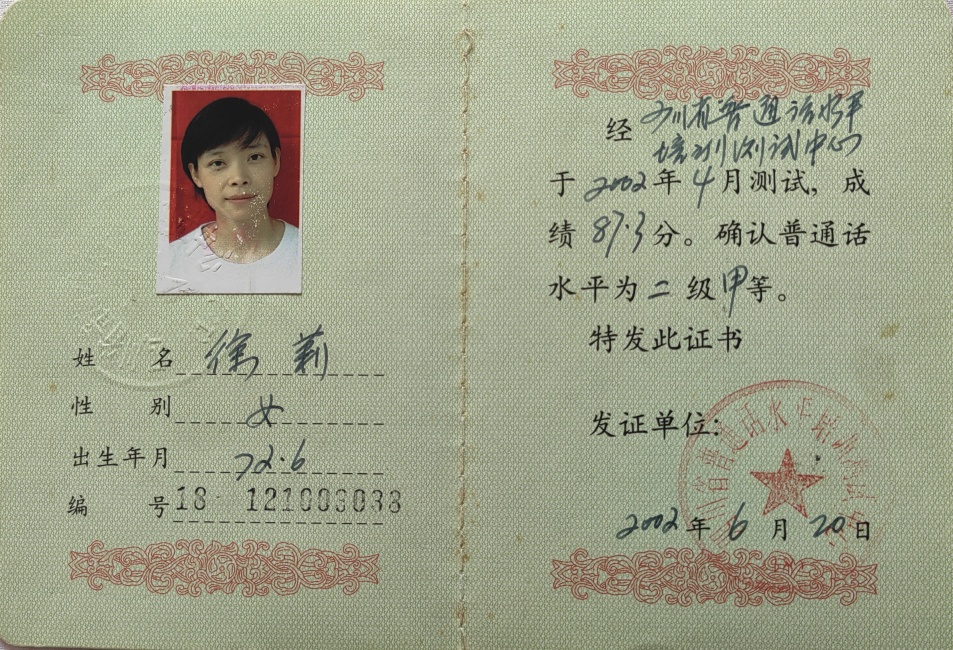 姓 名 徐莉
性 别 女
出生年月 72.6
编 号 18 121003038
经 四川省普通话水平
培训测试中心
于 2002 年 4 月测试，成
绩 87.3 分。确认普通话
水平为 二 级 甲 等。
特发此证书
发证单位：
2002 年 6 月 20 日